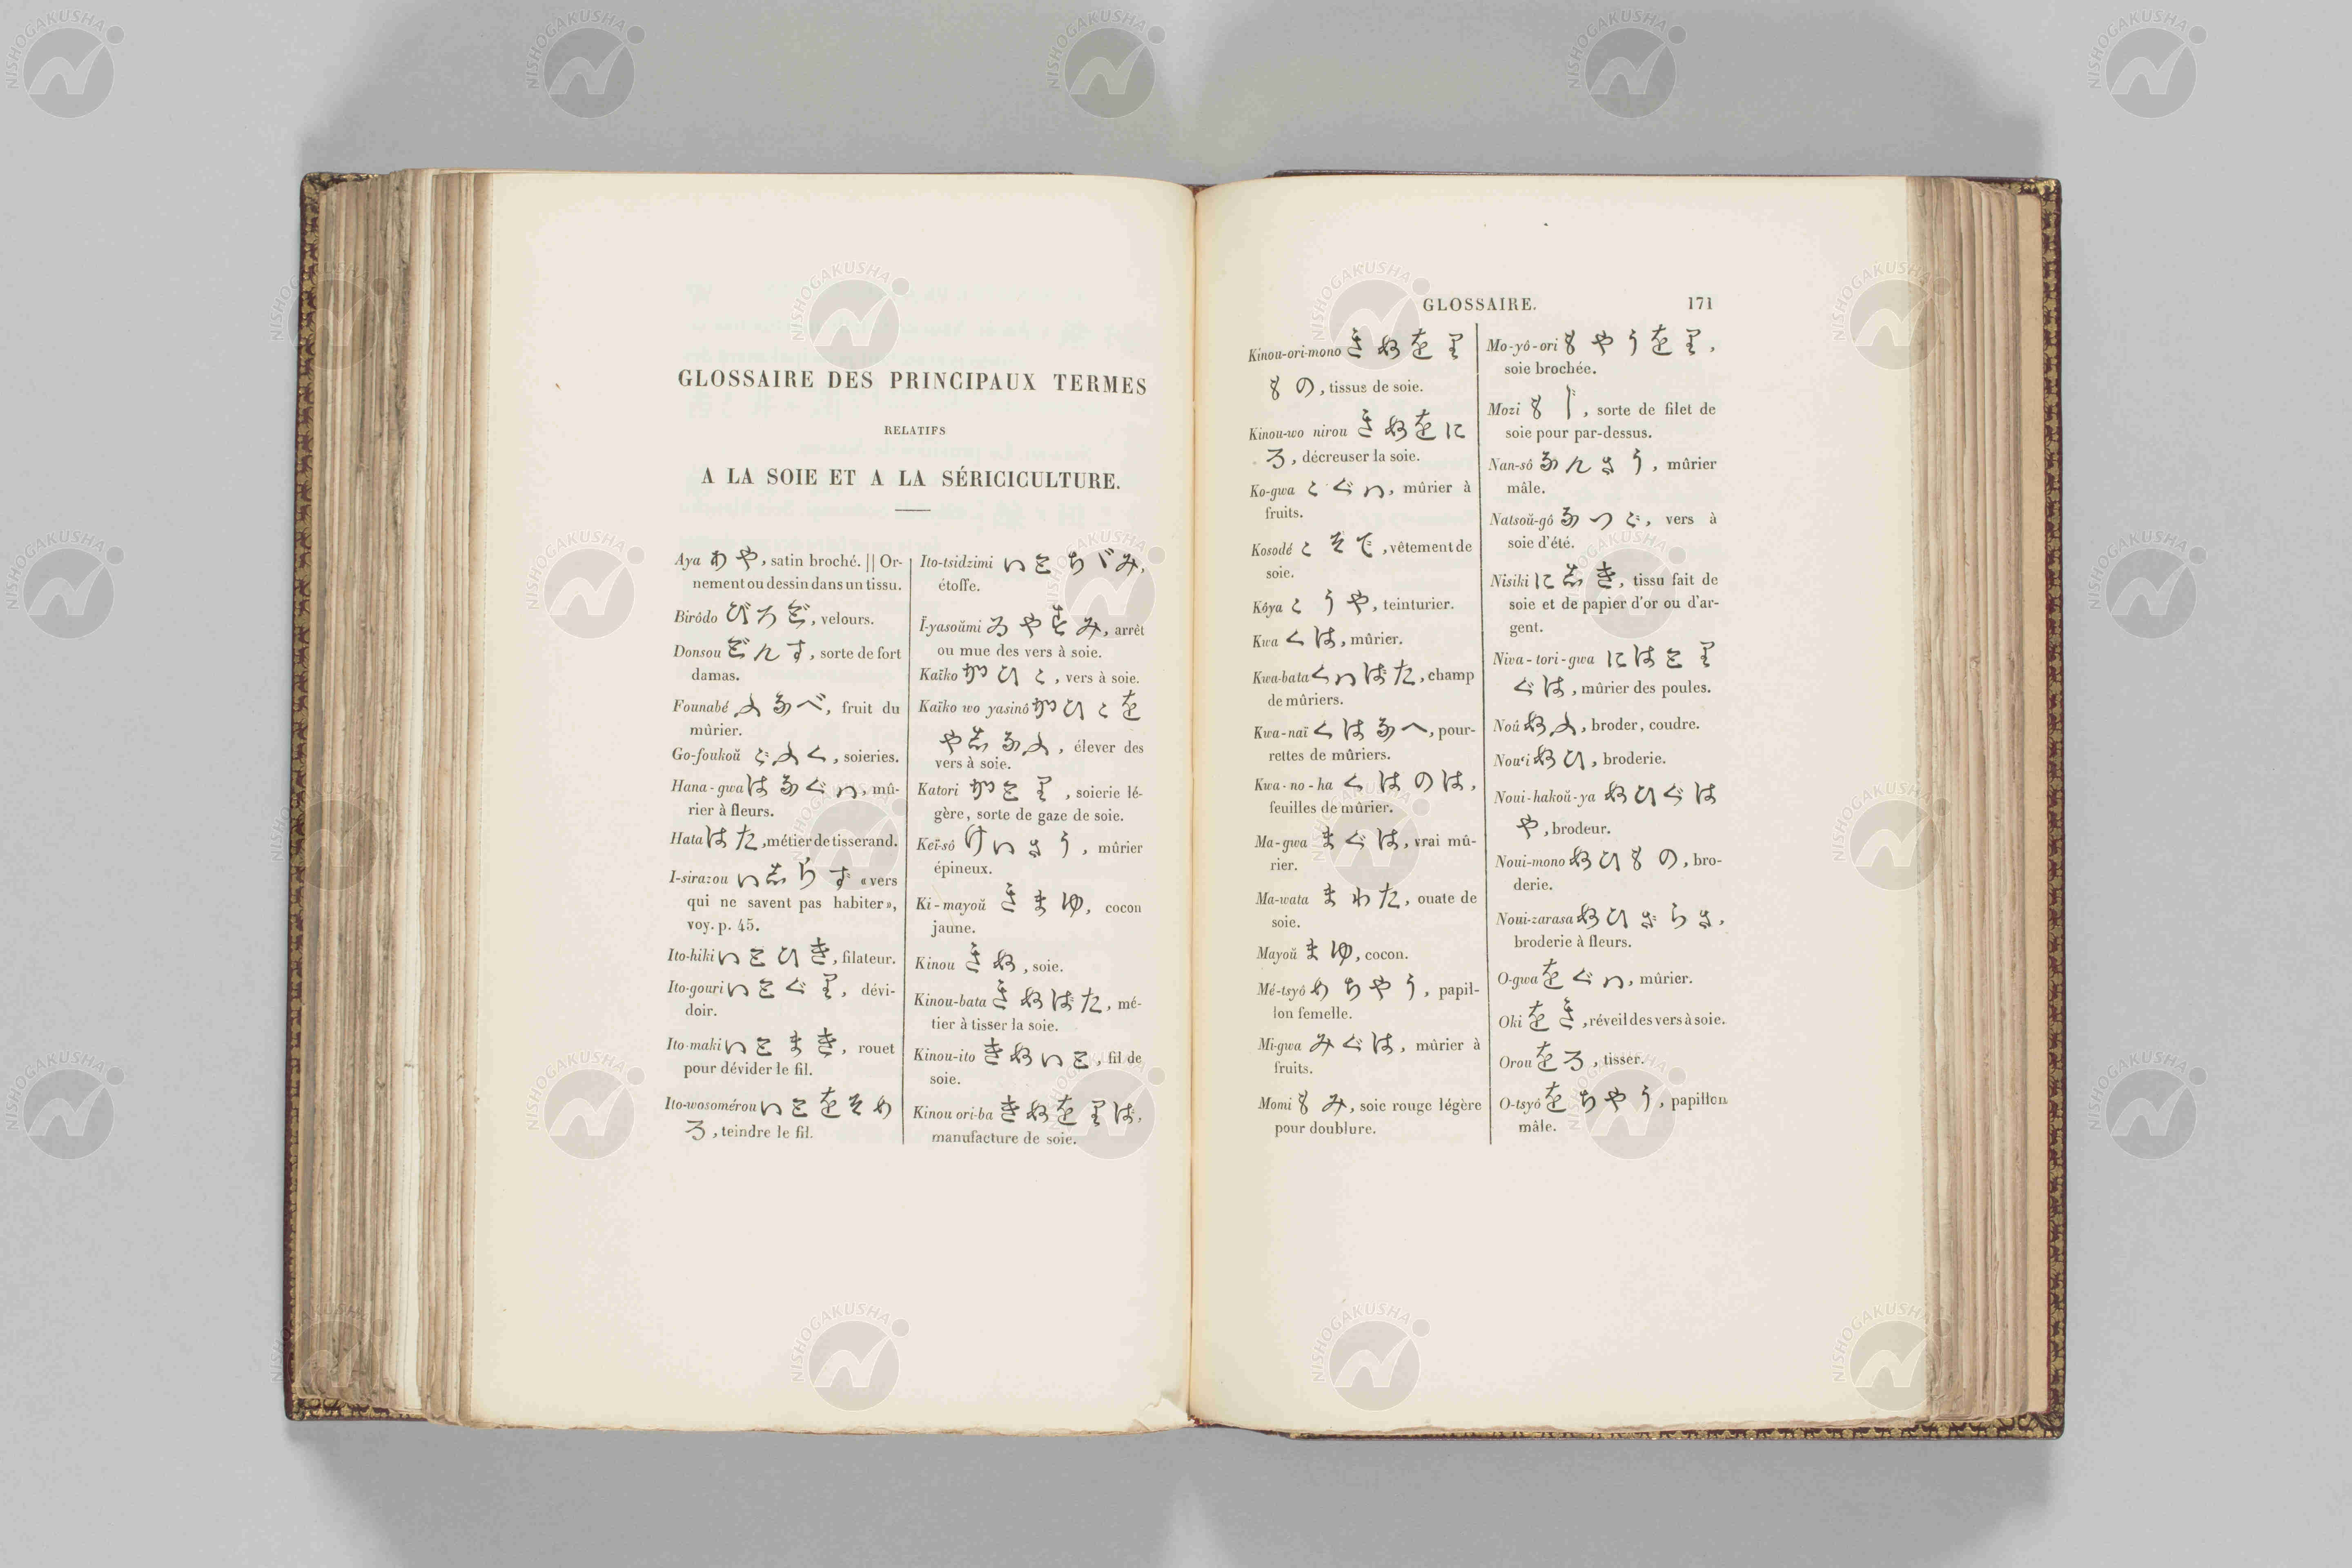 GLOSSAIRE DES PRINCIPAUX TERMES
RELATIFS
A LA SOIE ET A LA SÉRICICULTURE.
Aya あや, satin broché. || Or-
nement ou dessin dans un tissu.
Birôdo びろど, velours.
Donsou どんす, sorte de fort
damas.
Founabé ふなべ, fruit du
mûrier.
Go-foukoŭ ごふく, soieries.
Hana-gwa はなぐハ, mû-
rier à fleurs.
Hata はた, métier de tisserand.
I-sirazou いしらず «vers
qui ne savent pas habiter»,
voy. p. 45.
Ito-hiki いとひき, filateur.
Ito-gouri いとぐり, dévi-
doir.
Ito-maki いとまき, rouet
pour dévider le fil.
Ito-wosomérou いとをそめ
る, teindre le fil.
Ito-tsidzimi いとちゞみ,
étoffe.
Ï-yasoŭmi ゐやすみ, arrêt
ou mue des vers à soie.
Kaïko かひこ, vers à soie.
Kaïko wo yasinô かひこを
やしなふ, élever des
vers à soie.
Katori かとり, soierie lé-
gère, sorte de gaze de soie.
Keï-sô けいさう, mûrier
épineux.
Ki-mayoŭ きまゆ, cocon
jaune.
Kinou きぬ, soie.
Kinou-bata きぬばた, mé-
tier à tisser la soie.
Kinou-ito きぬいと, fil de
soie.
Kinou ori-ba きぬをりば,
manufacture de soie.
GLOSSAIRE. 171
Kinou-ori-mono きぬをり
もの, tissus de soie.
Kinou-wo nirou きぬをに
る, décreuser la soie.
Ko-gwa こぐハ, mûrier à
fruits.
Kosodé こそで, vêtement de
soie.
Kôya こうや, teinturier.
Kwa くは, mûrier.
Kwa-bata くハばた, champ
de mûriers.
Kwa-naï くはなへ, pour-
rettes de mûriers.
Kwa-no-ha くはのは,
feuilles de mûrier.
Ma-gwa まぐは, vrai mû-
rier.
Ma-wata まわた, ouate de
soie.
Mayoŭ まゆ, cocon.
Mé-tsyô めちやう, papil-
lon femelle.
Mi-gwa みぐは, mûrier à
fruits.
Momi もみ, soie rouge légère
pour doublure.
Mo-yô-ori もやうをり,
soie brochée.
Mozi もじ, sorte de filet de
soie pour par-dessus.
Nan-sô なんさう, mûrier
mâle.
Natsoŭ-gô なつご, vers à
soie d'été.
Nisiki にしき, tissu fait de
soie et de papier d'or ou d'ar-
gent.
Niwa-tori-gwa にはとり
ぐは, mûrier des poules.
Noû ぬふ, broder, coudre.
Nou'i ぬひ, broderie.
Noui-hakoŭ-ya ぬひぐは
や, brodeur.
Noui-mono ぬひもの, bro-
derie.
Noui-zarasa ぬひざらさ,
broderie à fleurs.
O-gwa をぐハ, mûrier.
Oki をき, réveil des vers à soie.
Orou をる, tisser.
O-tsyô をちやう, papillon
mâle.